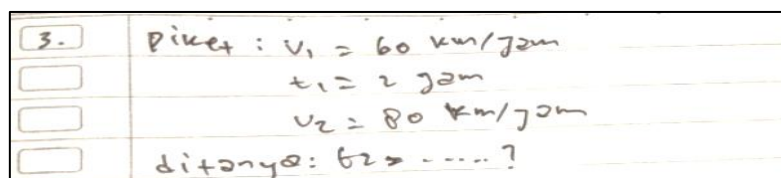 3. Diket : V₁ = 60 km/jam
t₁ = 2 jam
V₂ = 80 km/jam
ditanya: t₂ = .....?